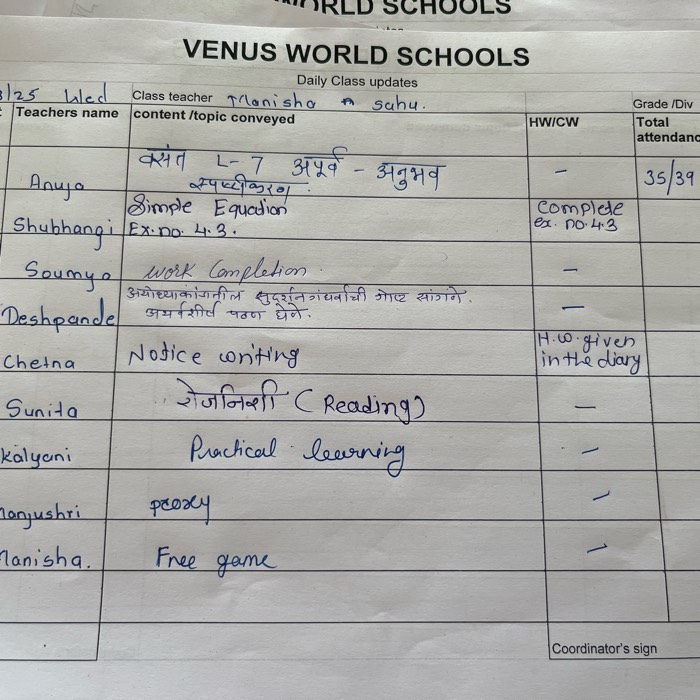 WORLD SCHOOLS
VENUS WORLD SCHOOLS
Daily Class updates
/25 Wed Class teacher Manisha sahu. Grade /Div
Teachers name content /topic conveyed HW/CW Total
attendanc
वसंत L-7 अपूर्व - अनुभव - 35/39
Anuja स्पष्टीकरण.
Simple Equation complete
Shubhangi Ex.no. 4.3. ex. no. 4.3
Soumya work Completion. -
अयोध्याकांडातील सुदर्शन गंधर्वाची गोष्ट सांगणे.
Deshpande अथर्वशीर्ष पठण घेणे. -
H.w. given
Chetna Notice writing in the diary
Sunita रोजनिशी (Reading) -
kalyani Practical learning -
anjushri proxy -
anisha. Free game -
Coordinator's sign